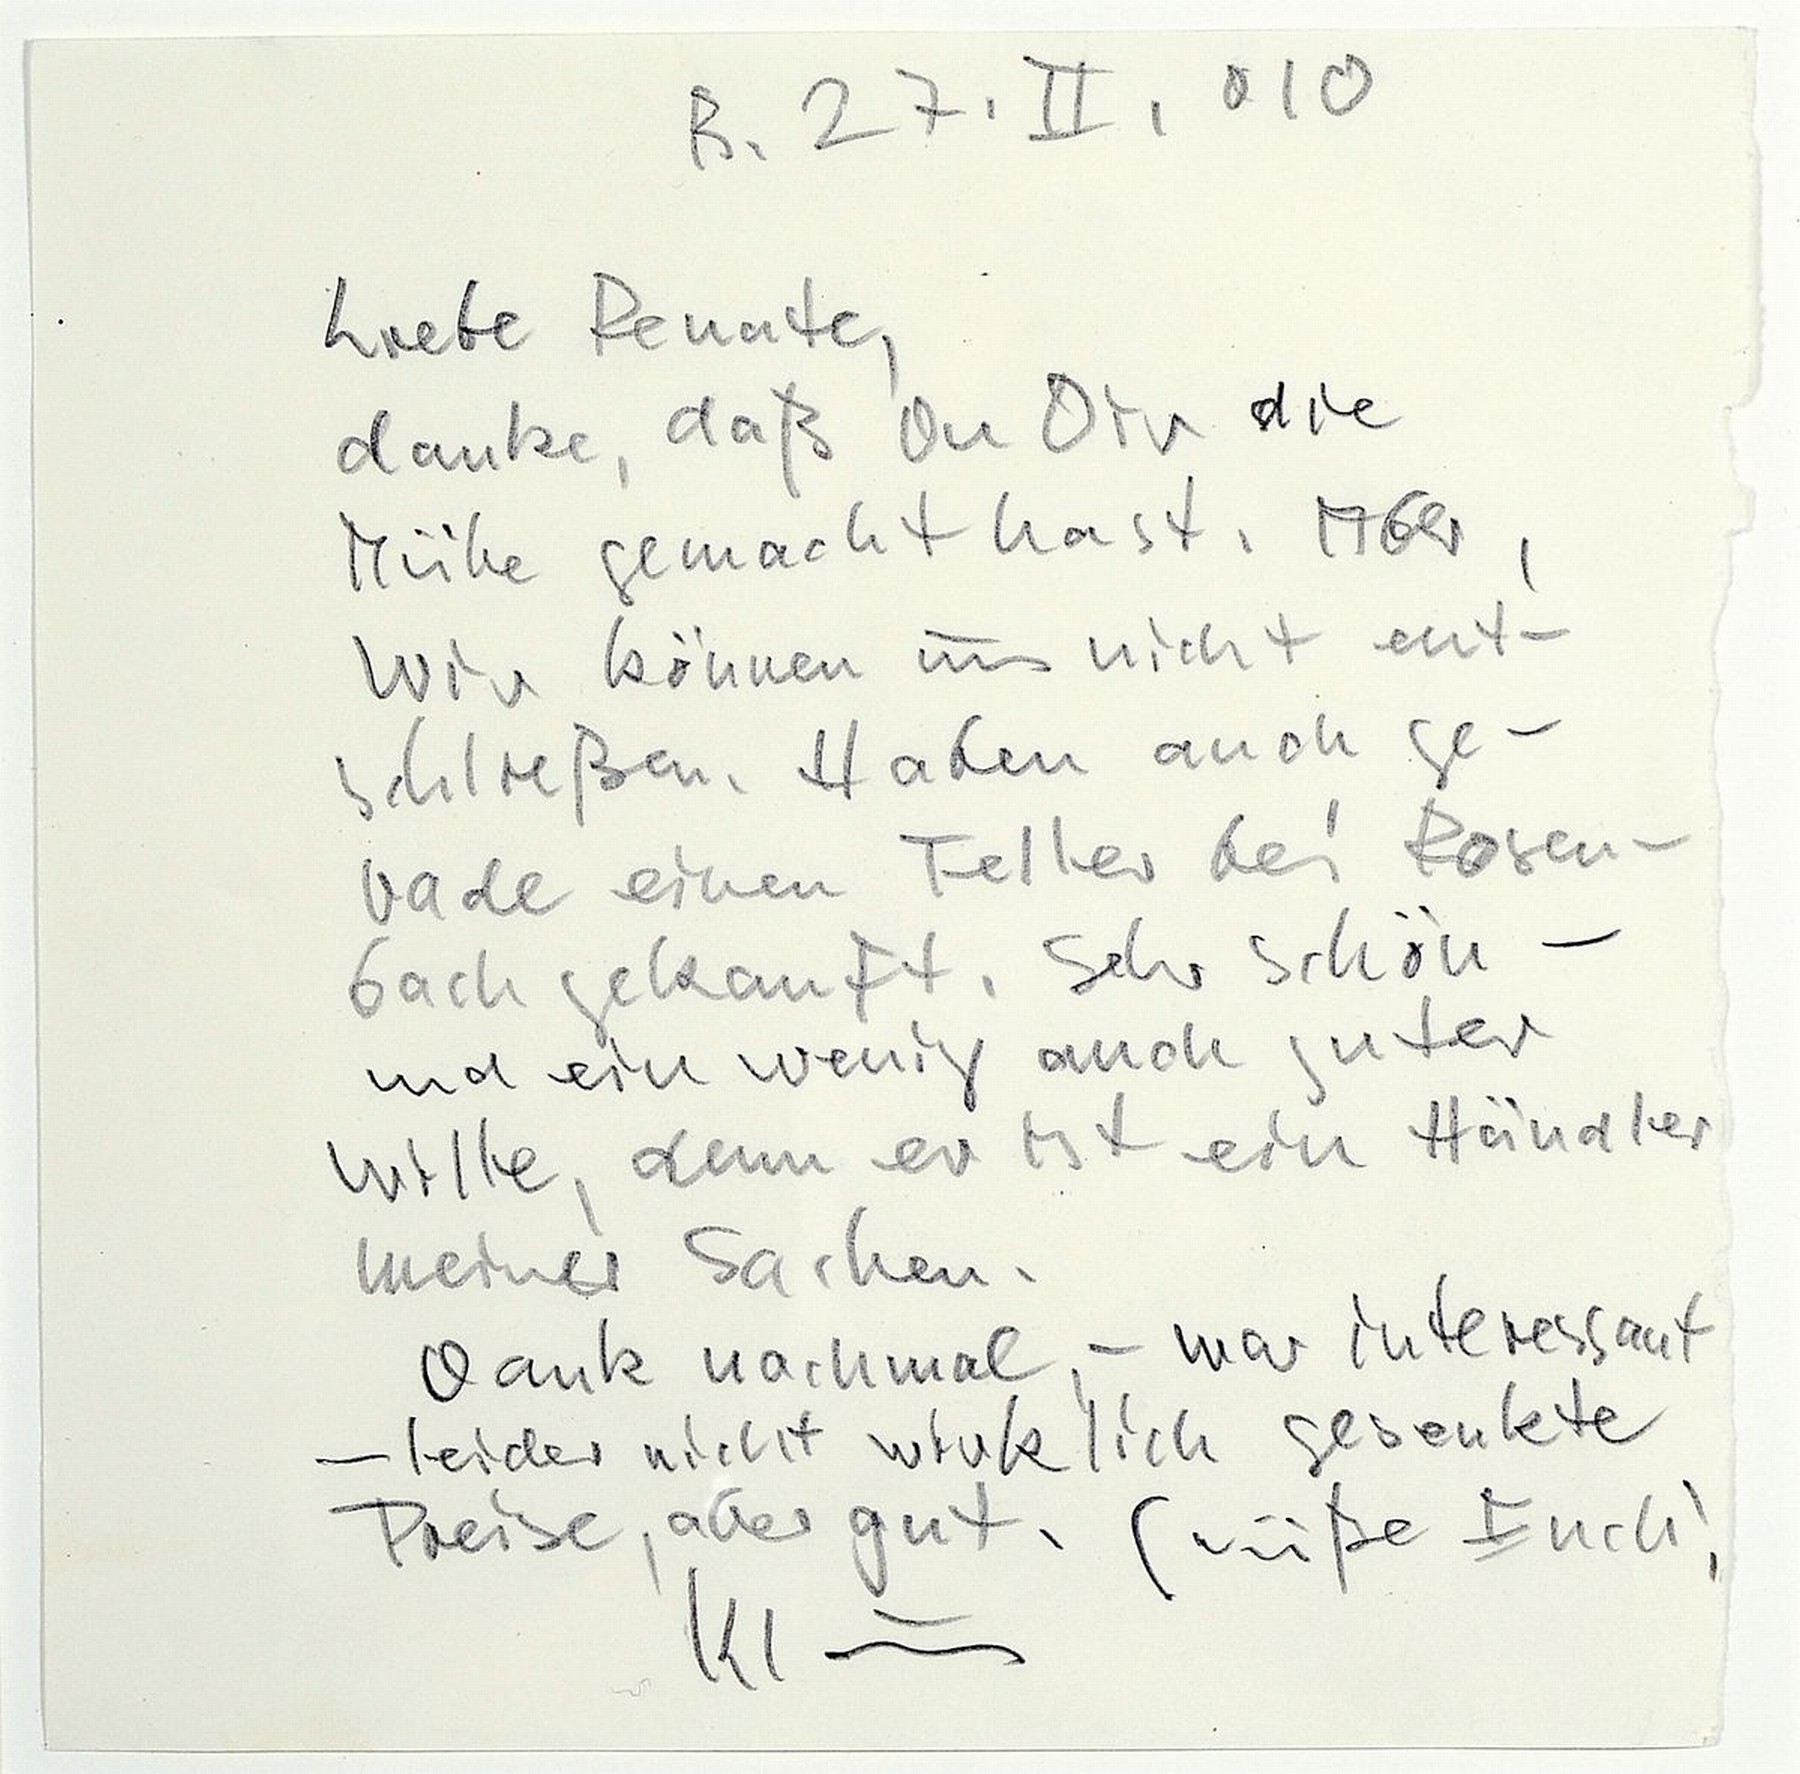 B. 27. II. 010
Liebe Renate,
danke, daß Du Dir die
Mühe gemacht hast. Aber,
wir können uns nicht ent-
schließen. Haben auch ge-
rade einen Teller bei Rosen-
bach gekauft. Sehr schön –
und ein wenig auch guter
Wille, denn er ist ein Händler
meiner Sachen.
Dank nochmal, – war interessant
– leider nicht wirklich gesenkte
Preise, aber gut. Grüße Euch!,
Kl